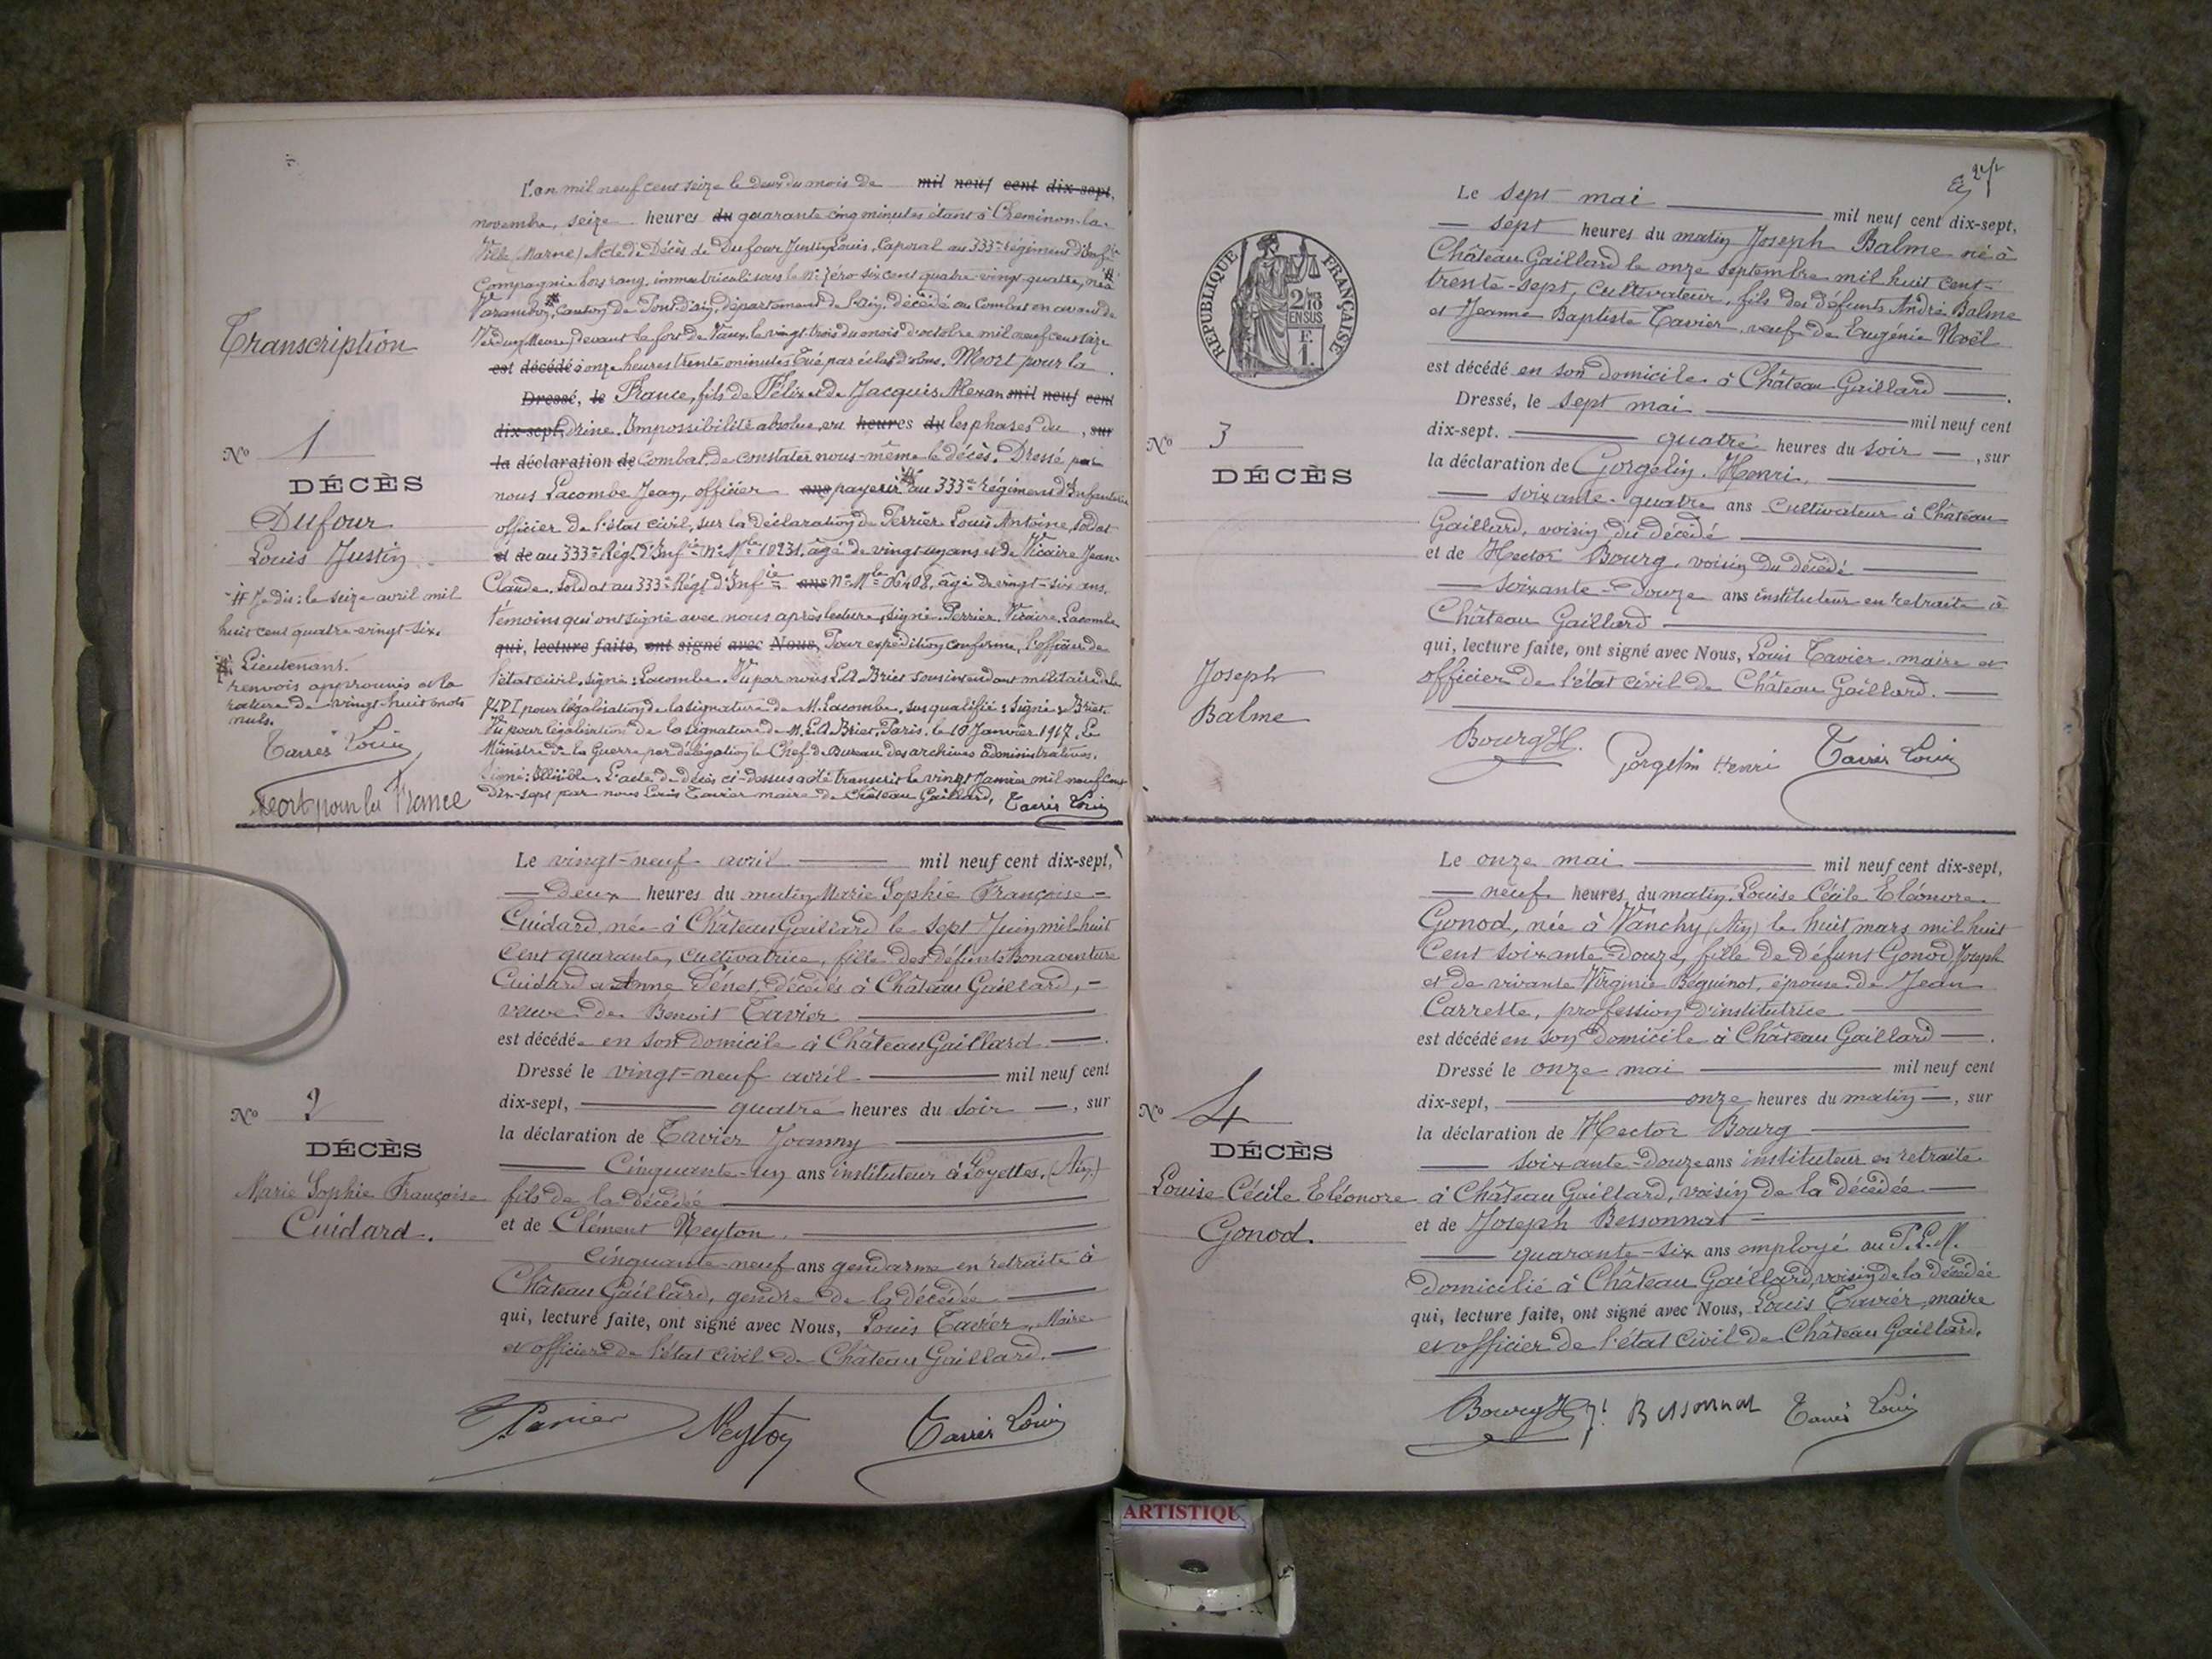 Transcription
N° 1
DÉCÈS
Dufour
Louis Justin
# Je dis: le seize avril mil
huit cent quatre-vingt-six.
# Lieutenant.
renvois approuvés et la
rature de vingt-huit mots
nuls.
Tavier Louis
Mort pour la France
L'an mil neuf cent seize le deux du mois de mil neuf cent dix-sept,
novembre, seize heures du quarante cinq minutes étant à Cheminon-la-
Ville (Marne) Acte de Décès de Dufour Justin Louis, Caporal au 333e régiment d'Infie
Compagnie hors rang, immatriculé sous le N° zéro six cent quatre-vingt-quatre, né à #
Varambon, Canton de Pont-d'Ain, département de l'Ain, décédé au Combat en avant de
Verdun (Meuse) devant le fort de Vaux, le vingt-trois du mois d'octobre mil neuf cent seize
est décédé à onze heures trente minutes Tué par éclat d'obus. Mort pour la
Dressé, le France, fils de Félix et de Jacquis Alexan mil neuf cent
dix-sept, drine. Impossibilité absolue, vu heures du les phases du , sur
la déclaration de Combat, de constater nous-même le décès. Dressé par
nous Lacombe Jean, officier ans payeur # au 333e régiment d'Infanterie
officier de l'état civil, sur la déclaration de Perrier Louis Antoine, soldat
et de au 333e Régt d'Infie N° Mle 10231, âgé de vingt-un ans et de Vicaire Jean-
Claude, soldat au 333e Régt d'Infie ans N° Mle 06408, âgé de vingt-six ans,
témoins qui ont signé avec nous après lecture, signé: Perrier. Vicaire. Lacombe
qui, lecture faite, ont signé avec Nous, Pour expédition conforme, l'officier de
l'état civil, signé: Lacombe. Vu par nous L.A. Briet sous intendant militaire de la
74 D.I. pour légalisation de la signature de M. Lacombe, sus qualifié: signé: Briet.
Vu pour légalisation de la signature de M. L.A. Briet, Paris, le 10 Janvier 1917. Le
Ministre de la Guerre par délégation le Chef de Bureau des archives administratives.
Signé: Illisible. L'acte de décès ci-dessus a été transcrit le vingt Janvier mil neuf cent
dix-sept par nous Louis Tavier maire de Château Gaillard. Tavier Louis
N° 2
DÉCÈS
Marie Sophie Françoise
Cuidard.
Le vingt-neuf avril mil neuf cent dix-sept,
Deux heures du matin Marie Sophie Françoise
Cuidard, née à Château Gaillard le sept Juin mil huit
Cent quarante, cultivatrice, fille des défunts Bonaventure
Cuidard et Anne Pénet, décédés à Château Gaillard,
veuve de Benoit Tavier
est décédée en son domicile à Château Gaillard.
Dressé le vingt-neuf avril mil neuf cent
dix-sept, quatre heures du soir , sur
la déclaration de Tavier Joanny
Cinquante-un ans instituteur à Loyettes, (Ain)
fils de la décédée
et de Clément Neyton.
Cinquante-neuf ans gendarme en retraite à
Château Gaillard, gendre de la décédée
qui, lecture faite, ont signé avec Nous, Louis Tavier, Maire
et officier de l'état civil de Château Gaillard.
Tavier Neyton Tavier Louis
RÉPUBLIQUE FRANÇAISE
2/10
EN SUS
F.
1.
N° 3
DÉCÈS
Joseph
Balme
Le sept mai mil neuf cent dix-sept,
sept heures du matin Joseph Balme né à
Château Gaillard le onze septembre mil huit cent
trente-sept, cultivateur, fils des défunts André Balme
et Jeanne Baptiste Tavier, veuf de Eugénie Noël
est décédé en son domicile à Château Gaillard.
Dressé, le sept mai mil neuf cent
dix-sept. quatre heures du soir , sur
la déclaration de Gorgelin Henri,
soixante-quatre ans cultivateur à Château
Gaillard, voisin du décédé
et de Hector Bourg, voisin du décédé
soixante-douze ans instituteur en retraite à
Château Gaillard
qui, lecture faite, ont signé avec Nous, Louis Tavier, maire et
officier de l'état civil de Château Gaillard.
Bourg H. Gorgelin Henri Tavier Louis
N° 4
DÉCÈS
Louise Cécile Eléonore
Gonod.
Le onze mai mil neuf cent dix-sept,
neuf heures du matin Louise Cécile Eléonore
Gonod, née à Vanchy (Ain) le huit mars mil huit
Cent soixante-douze, fille de défunt Gonod Joseph
et de vivante Virginie Béguinot, épouse de Jean
Carrette, profession d'institutrice
est décédé en son domicile à Château Gaillard.
Dressé le onze mai mil neuf cent
dix-sept, onze heures du matin , sur
la déclaration de Hector Bourg
soixante-douze ans instituteur en retraite
à Château Gaillard, voisin de la décédée
et de Joseph Bessonnat
quarante-six ans employé au P.L.M.
domicilié à Château Gaillard, voisin de la décédée
qui, lecture faite, ont signé avec Nous, Louis Tavier, maire
et officier de l'état civil de Château Gaillard.
Bourg H J. Bessonnat Tavier Louis
ARTISTIQU